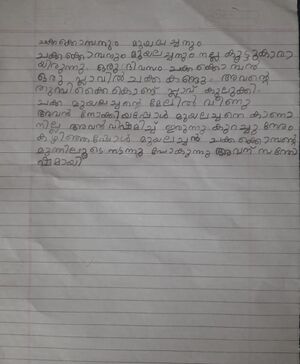 ചക്കക്കൊമ്പനും മുയലച്ചനും
ചക്കക്കൊമ്പനും മുയലച്ചനും നല്ല കൂട്ടുകാരാ
യിരുന്നു. ഒരു ദിവസം ചക്കക്കൊമ്പൻ
ഒരു പ്ലാവിൽ ചക്ക കണ്ടു. അവന്റെ
തുമ്പിക്കൈകൊണ്ട് പ്ലാവ് കുലുക്കി.
ചക്ക മുയലച്ചന്റെ മേലിൽ വീണു
അവൻ നോക്കിയപ്പോൾ മുയലച്ചനെ കാണാ
നില്ല അവൻ വിഷമിച്ച് ഇരുന്നു കുറച്ചു നേരം
കഴിഞ്ഞപ്പോൾ മുയലച്ചൻ ചക്കക്കൊമ്പന്റെ
മുന്നിലൂടെ നടന്നു പോകുന്നു അവന് സന്തോ
ഷമായി